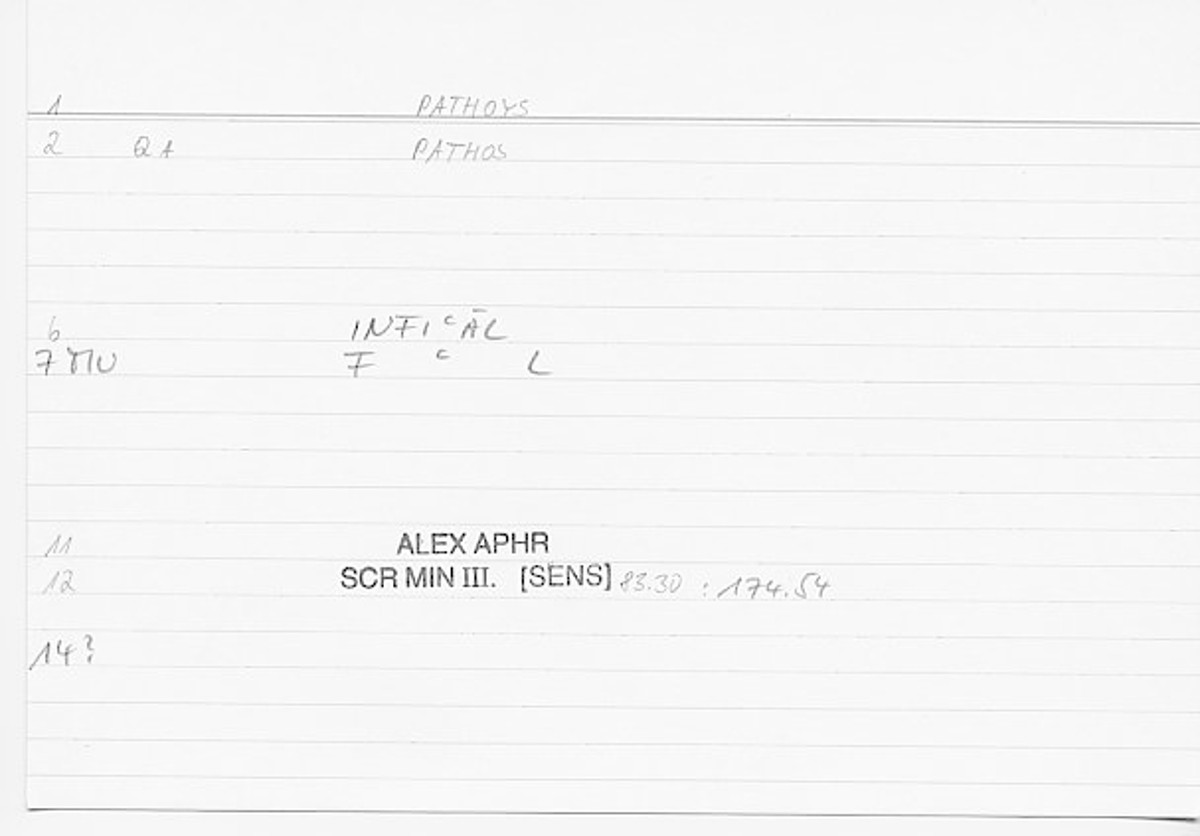 1 PATHOYS
2 QA PATHOS
6 INFIᶜĀL
7 MU F ᶜ L
11 ALEX APHR
12 SCR MIN III. [SENS] 83.30 : 174.54
14?